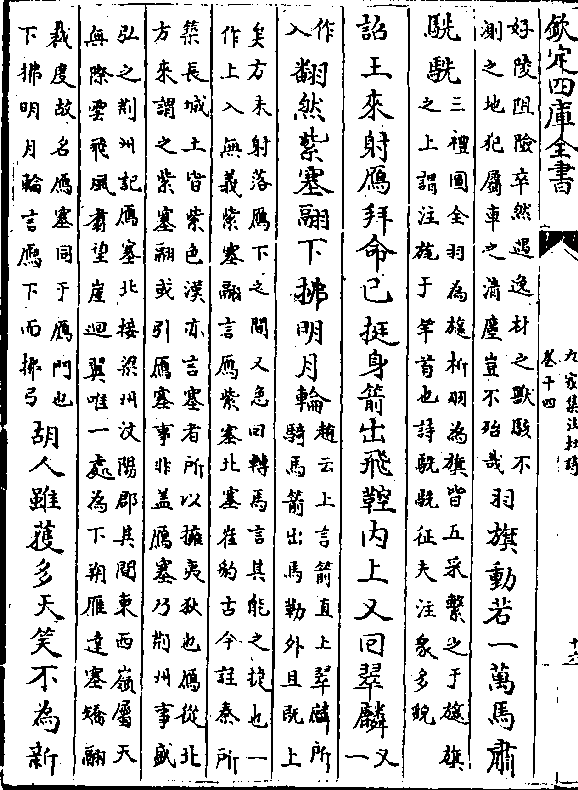 欽定四庫全書
九家集注杜詩
卷十四
好陵阻險卒然遇逸材之獸駭不
測之地犯屬車之清塵豈不殆哉羽旗動若一萬馬肅
駪駪三禮圖全羽為旞析羽為旌皆五采繫之于旞旗
之上謂注旄于竿首也詩駪駪征夫注衆多貌
詔王來射鴈拜命已挺身箭出飛鞚内上又回翠麟又一
作入翻然紫塞翮下拂明月輪趙云上言箭直上翠麟所
騎馬箭出馬勒外且既上
矣方未射落鴈下之間又急回轉馬言其能之捷也一
作上入無義紫塞翮言鴈紫塞北塞崔豹古今註秦所
築長城土皆紫色漢亦言塞者所以擁夷狄也鴈從北
方來謂之紫塞翮或引鴈塞事非盖鴈塞乃荆州事盛
弘之荆州記鴈塞北接梁州汶陽郡其間東西嶺屬天
無際雲飛風翥望崖迴翼唯一處為下朔雁達塞矯翮
裁度故名鴈塞同于鴈門也
下拂明月輪言鴈下而拂弓胡人雖獲多天笑不為新